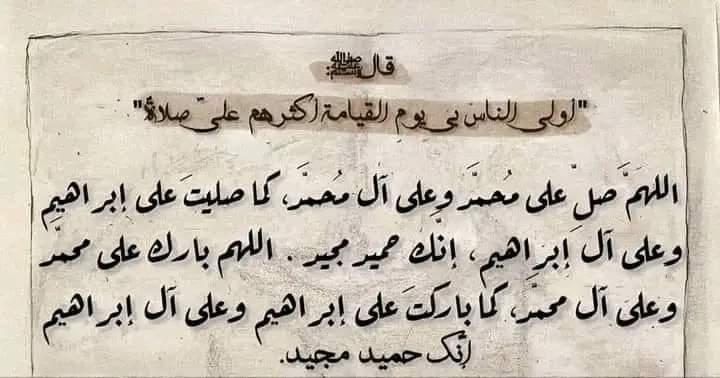 قال ﷺ:
"أولى الناس بي يوم القيامة أكثرهم عليّ صلاة"
اللهمَّ صلِّ على مُحمدَّ وعلى آل مُحمدَّ، كما صليتَ على إبراهيم
وعلى آل إبراهيم، إنّك حميد مجيد. اللهم بارك على محمّد
وعلى آل محمدَّ، كما باركتَ على إبراهيم وعلى آل إبراهيم
إنّك حميد مجيد.